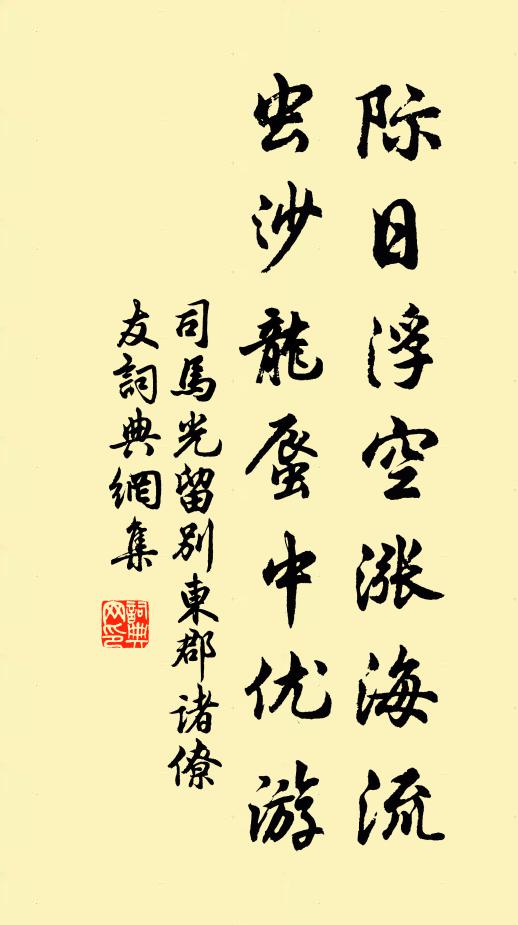 际日浮空涨海流
虫沙龍蜃中优游
司馬光留别東郡诸僚
友詞典網集
詞典
网印